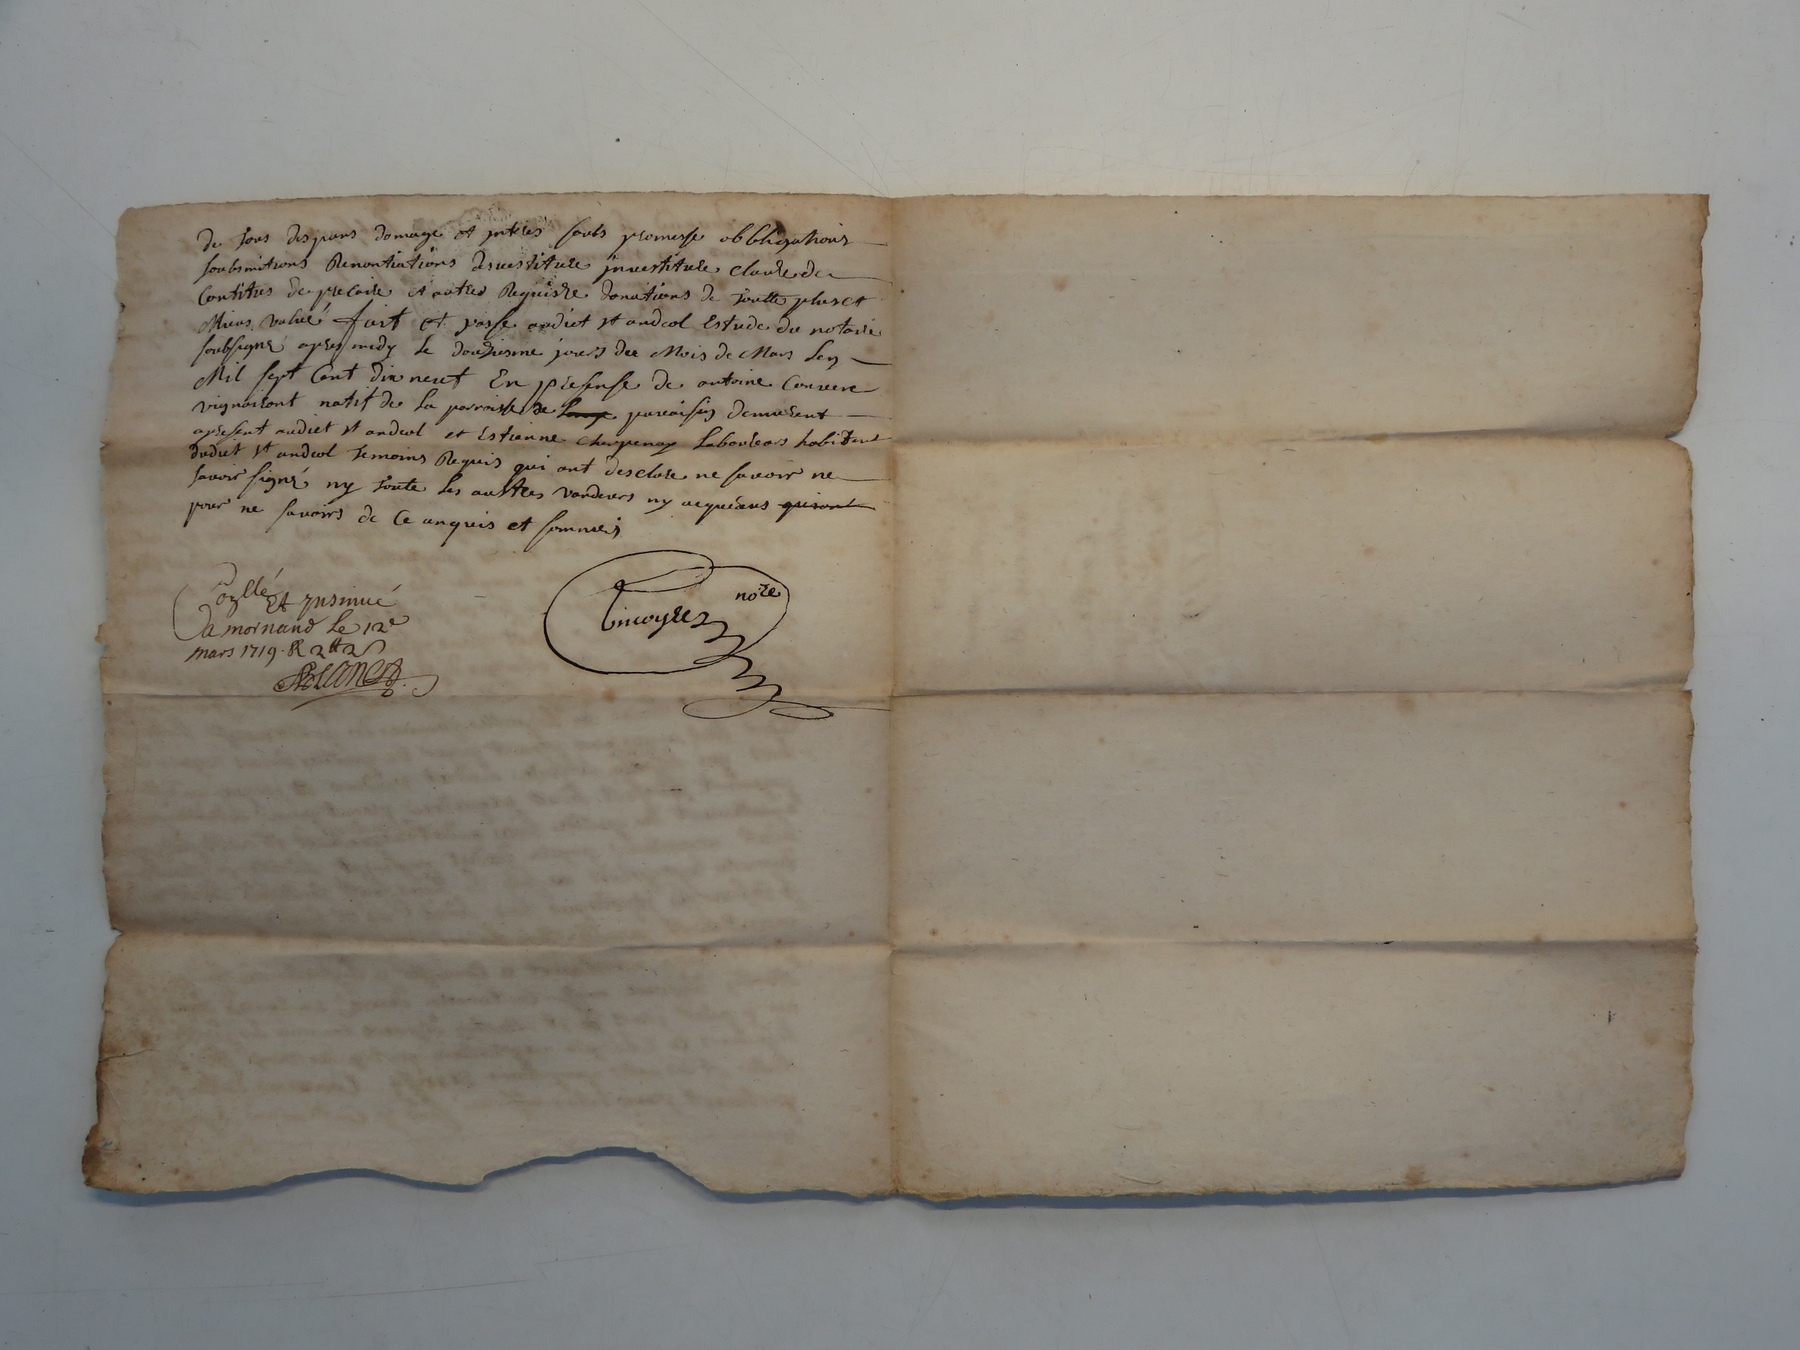 de tous despans domage et intres soubs promesse obbligations
soubsmitions Renontiations desvestiture jnvestiture clause de
Contitus de precaire et autres Requise donations de toutte plus et
Moins value fait et passe audict st andeol Estude du notaire
soubsigne apres midy le douziesme jours du Mois de Mars Lan
Mil sept Cent dix neuf En presense de antoine Couvere
vigneront natif de la parroisse de demeurent
apresent audict st andeol et Estienne Laboureur habitant
dudict st andeol temoins Requis qui ont desclare ne savoir ne
savoir signé ny toute les auttres vandeurs ny acquéreurs qui ont
pour ne savoirs de Ce anquis et sommes
Coyllé Et jnsinué
a mornand Le 12e
mars 1719 R 2tt 2s
nore